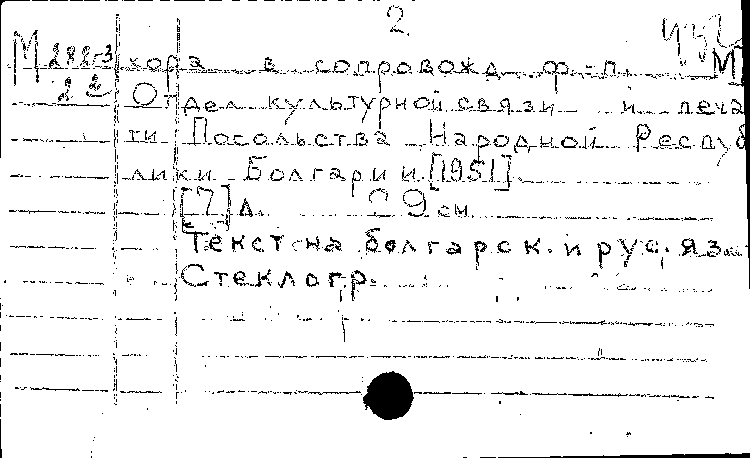 2.
М 282-3
22
хора в сопровожд. ф-п. М
Отдел культурной связи и печа
ти Посольства Народной Респуб
лики Болгарии [1951].
[7] л. 29 см.
Текст на болгарск. и рус. яз.
Стеклогр.